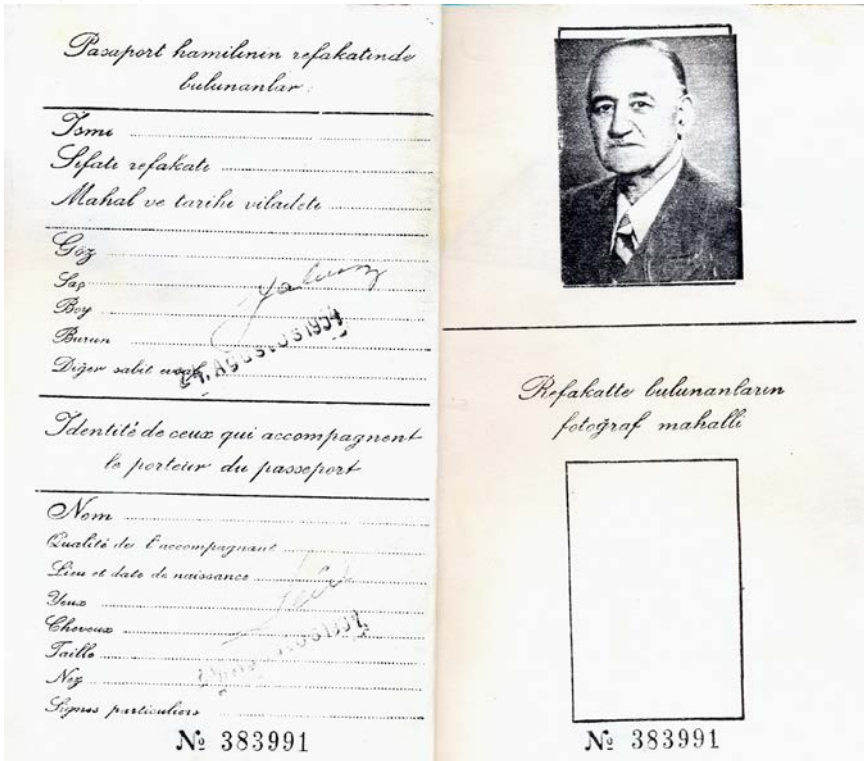 Pasaport hamilinin refakatinde
bulunanlar :
İsmi
Sıfatı refakatı
Mahal ve tarihi viladeti
Göz
Saç
Boy
Burun
Diğer sabit evsaf
yalnız
AĞUSTOS 1954
Identité de ceux qui accompagnent
le porteur du passeport
Nom
Qualité de l'accompagnant
Lieu et date de naissance
Yeux
Cheveux
Taille
Nez
Signes particuliers
№ 383991
Refakatte bulunanların
fotoğraf mahalli
№ 383991